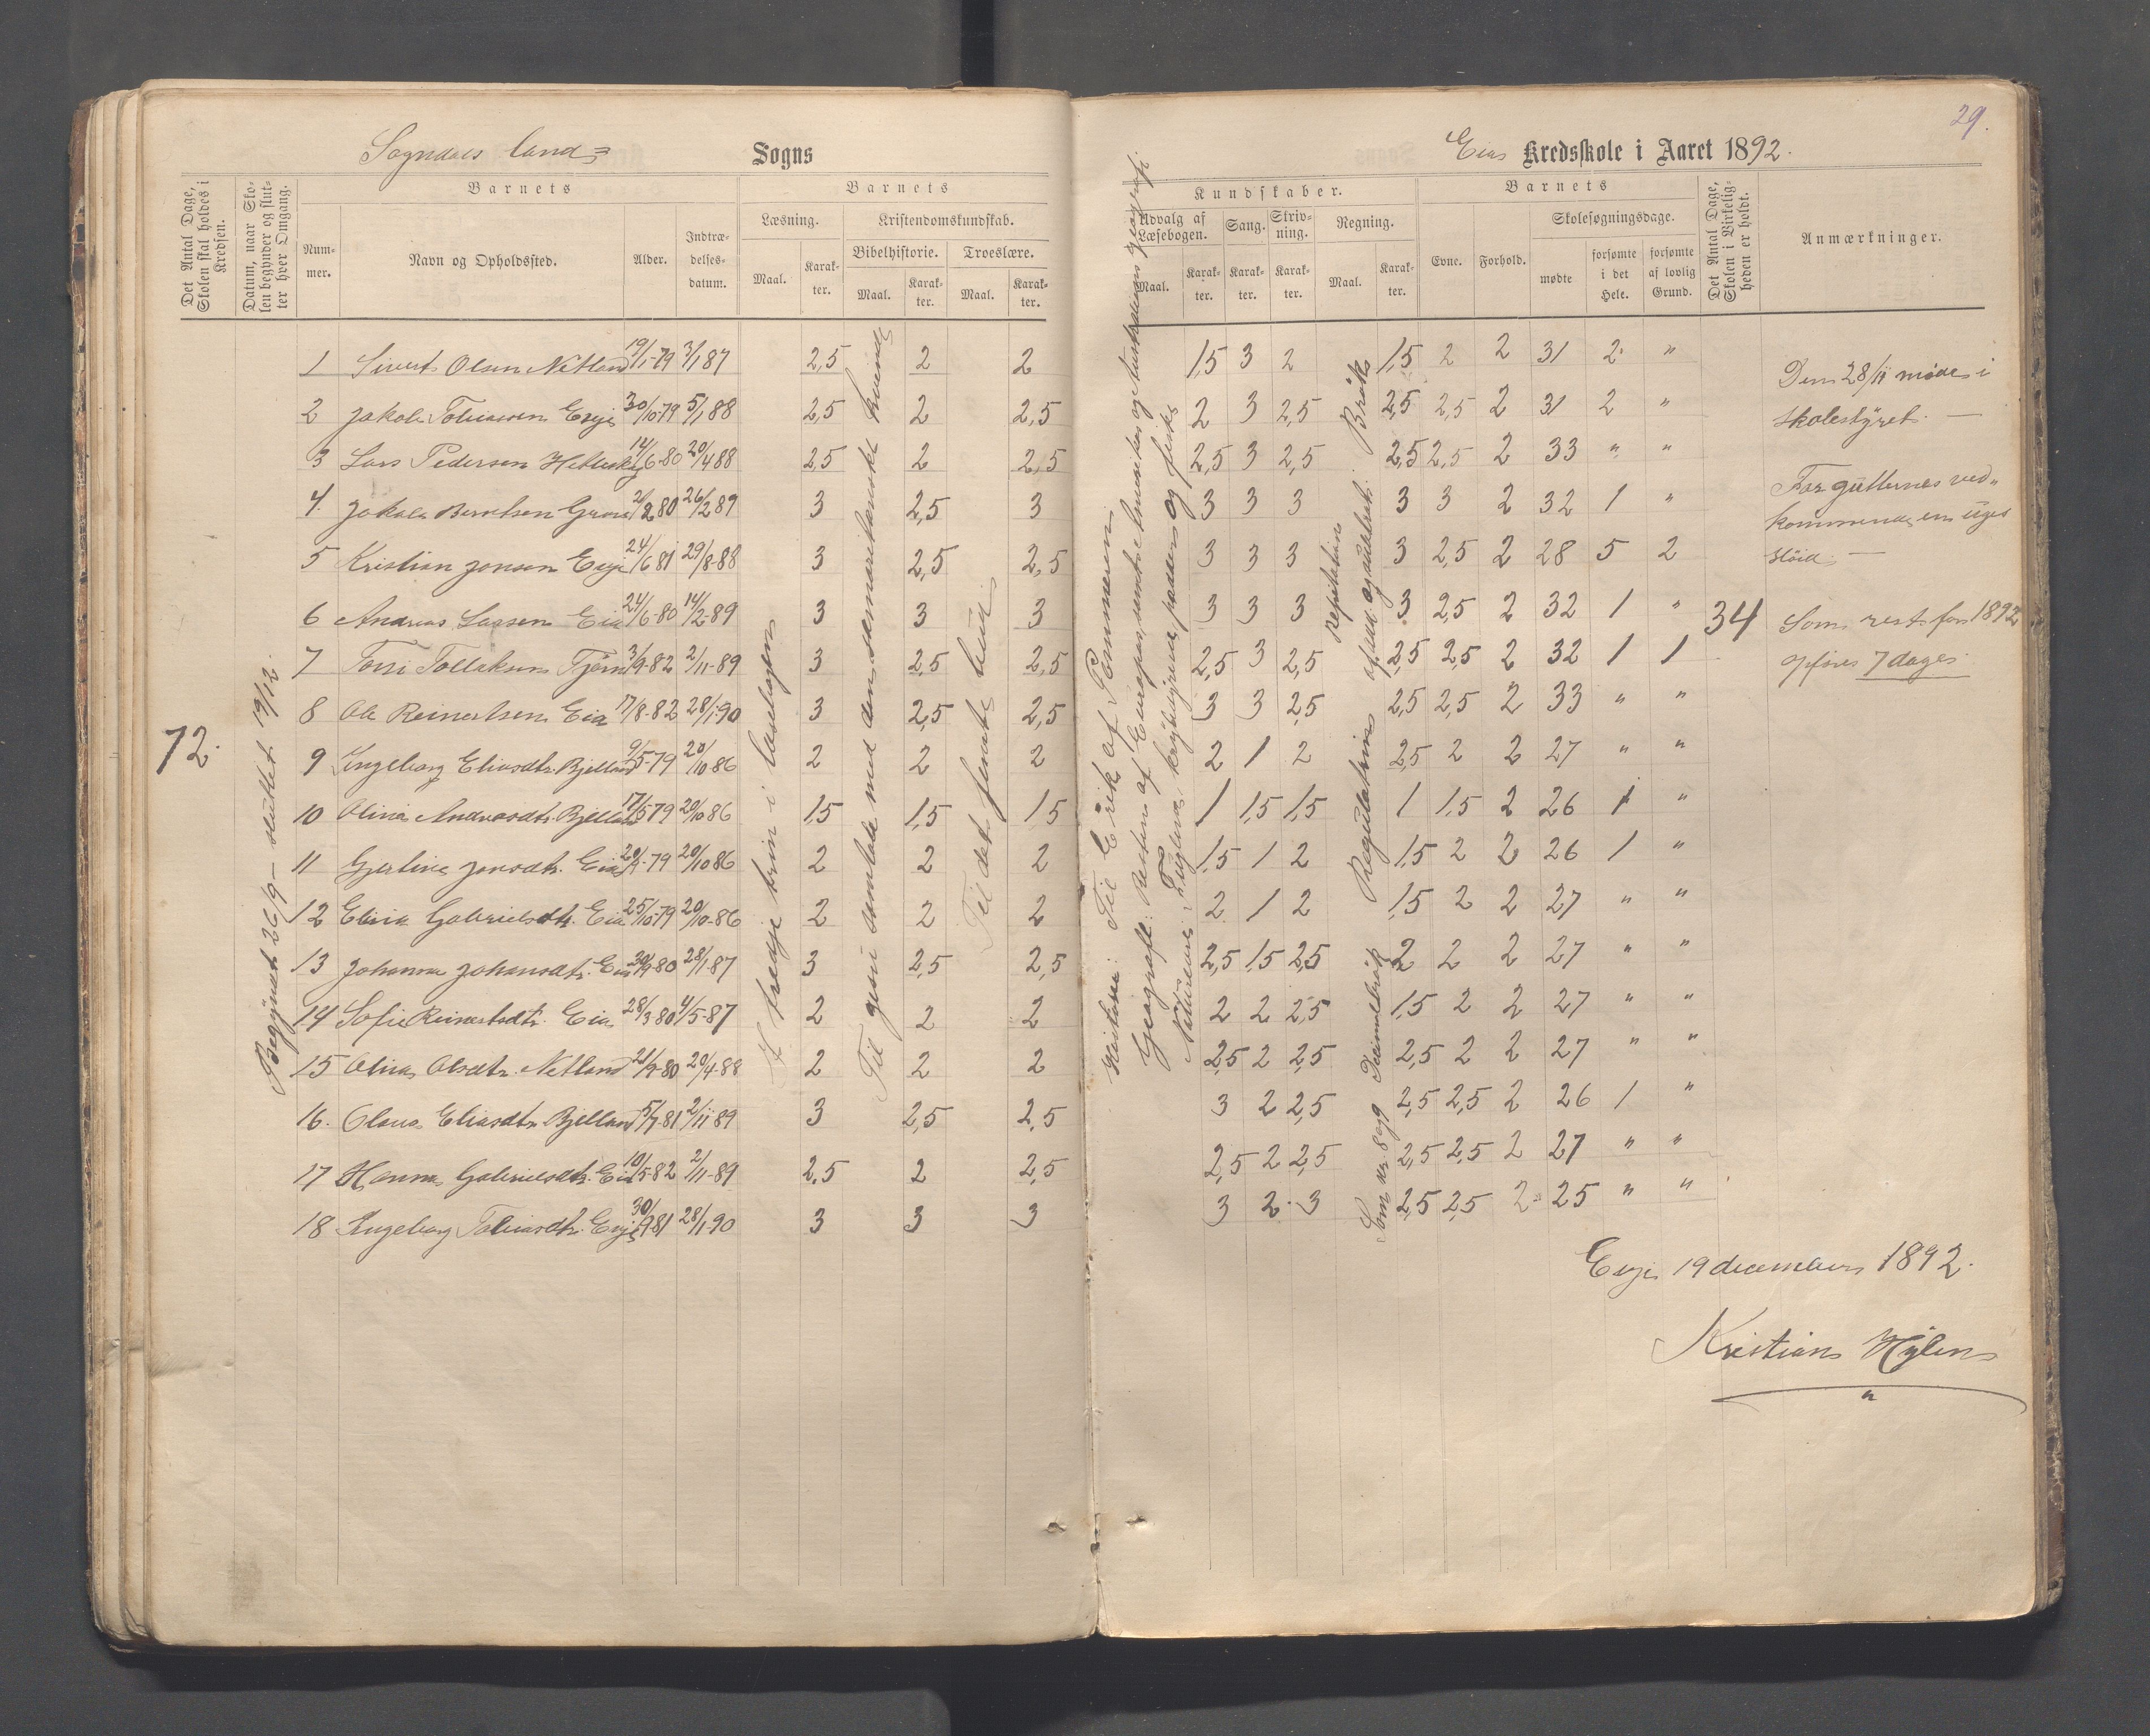 29.
Sogndals land= Sogns
Eia Kredsskole i Aaret 1892.
Det Antal Dage, Skolen skal holdes i Kredsen.
Datum, naar Skolen begynder og slutter hver Omgang.
Barnets
Nummer.
Navn og Opholdssted.
Alder.
Indtrædelsesdatum.
Barnets
Læsning.
Maal.
Karakter.
Kristendomskundskab.
Bibelhistorie.
Maal.
Karakter.
Troeslære.
Maal.
Karakter.
Kundskaber.
Udvalg af Læsebogen.
Maal.
Karakter.
Sang.
Karakter.
Skrivning.
Karakter.
Regning.
Maal.
Karakter.
Barnets
Evne.
Forhold.
Skolesøgningsdage.
mødte
forsømte i det Hele.
forsømte af lovlig Grund.
Det Antal Dage, Skolen i Virkeligheden er holdt.
Anmærkninger.
72.
Begyndt 26/9 - sluttet 19/12.
1 Sivert Olsen Netland 19/1-79 3/1 87 2,5 2 2 1,5 3 2 1,5 2 2 31 2 "
2 Jakob Tobiassen Eeje 30/10-79 5/1 88 2,5 2 2,5 2 3 2,5 2,5 2,5 2 31 2 "
3 Lars Pedersen 14/6-80 20/4 88 2,5 2 2,5 2,5 3 2,5 2,5 2,5 2 33 " "
4. Jakob Berntsen 2/2 80 26/2 89 3 2,5 3 3 3 3 3 3 2 32 1 "
5 Kristian Jonsen Eeje 24/6 81 29/8-88 3 2,5 2,5 3 3 3 3 2,5 2 28 5 2
6 Andreas Lassen Eia 24/6-80 14/2-89 3 3 3 3 3 3 3 2,5 2 32 1 "
7 Torri Tollaksen Tjørn 3/9-82 2/11-89 3 2,5 2,5 2,5 3 2,5 2,5 2,5 2 32 1 1
8 Ole Reinertsen Eia 17/8-82 28/1-90 3 2,5 2,5 3 3 2,5 2,5 2,5 2 33 " "
9 Ingeborg Eliasdtr. Bjelland 9/5-79 20/10-86 2 2 2 2 1 2 2,5 2 2 27 " "
10 Olina Andreasdtr. Bjelland 17/5 79 20/10 86 1,5 1,5 1,5 1 1,5 1,5 1 1,5 2 26 1 "
11 Gjertine Jonsdtr. Eia 20/9-79 20/10 86 2 2 2 1,5 1 2 1,5 2 2 26 1 "
12 Elina Gabrielsdtr. Eia 25/10-79 20/10-86 2 2 2 2 1 2 1,5 2 2 27 " "
13 Johanna Johansdtr. Eia 30/9-80 28/1-87 3 2,5 2,5 2,5 1,5 2,5 2 2 2 27 " "
14 Sofie Reinertsdtr. Eia 28/3 80 4/5-87 2 2 2 2 2 2,5 1,5 2 2 27 " "
15 Olina Olsdtr. Netland 21/9-80 20/4-88 2 2 2 2,5 2 2,5 2,5 2 2 27 " "
16. Olava Eliasdtr. Bjelland 5/7-81 2/11 89 3 2,5 2,5 3 2 2,5 2,5 2,5 2 26 1 "
17 Hanna Gabrielsdtr. Eia 10/5-82 2/11-89 2,5 2 2,5 2,5 2 2,5 2,5 2,5 2 27 " "
18 Ingeborg Tobiasdtr. Eeje 30/9 81 28/1-90 3 3 3 3 2 3 2,5 2,5 2 25 " "
I tredje trin i læsebogen
Til Jesu samtale med den samaritanske kvinde
Til det femte bud.
Historie: Til Erik af Pommern
Geografi: Resten af Europa, samt Amerikas og Australiens geografi.
Naturen: Fuglene, krybdyrene, padder og fiske
Repitation af sml. og addut. Brøk
Regulatrin
Som nr. 8 og Decimalbrøk
34
Den 28/11 møde i
skolestyret. —
For gutternes ved-
kommende en uges
sløid. —
Som rest for 1892
opføres 7 dage.
Eeje 19 december 1892.
Kristian Hylen